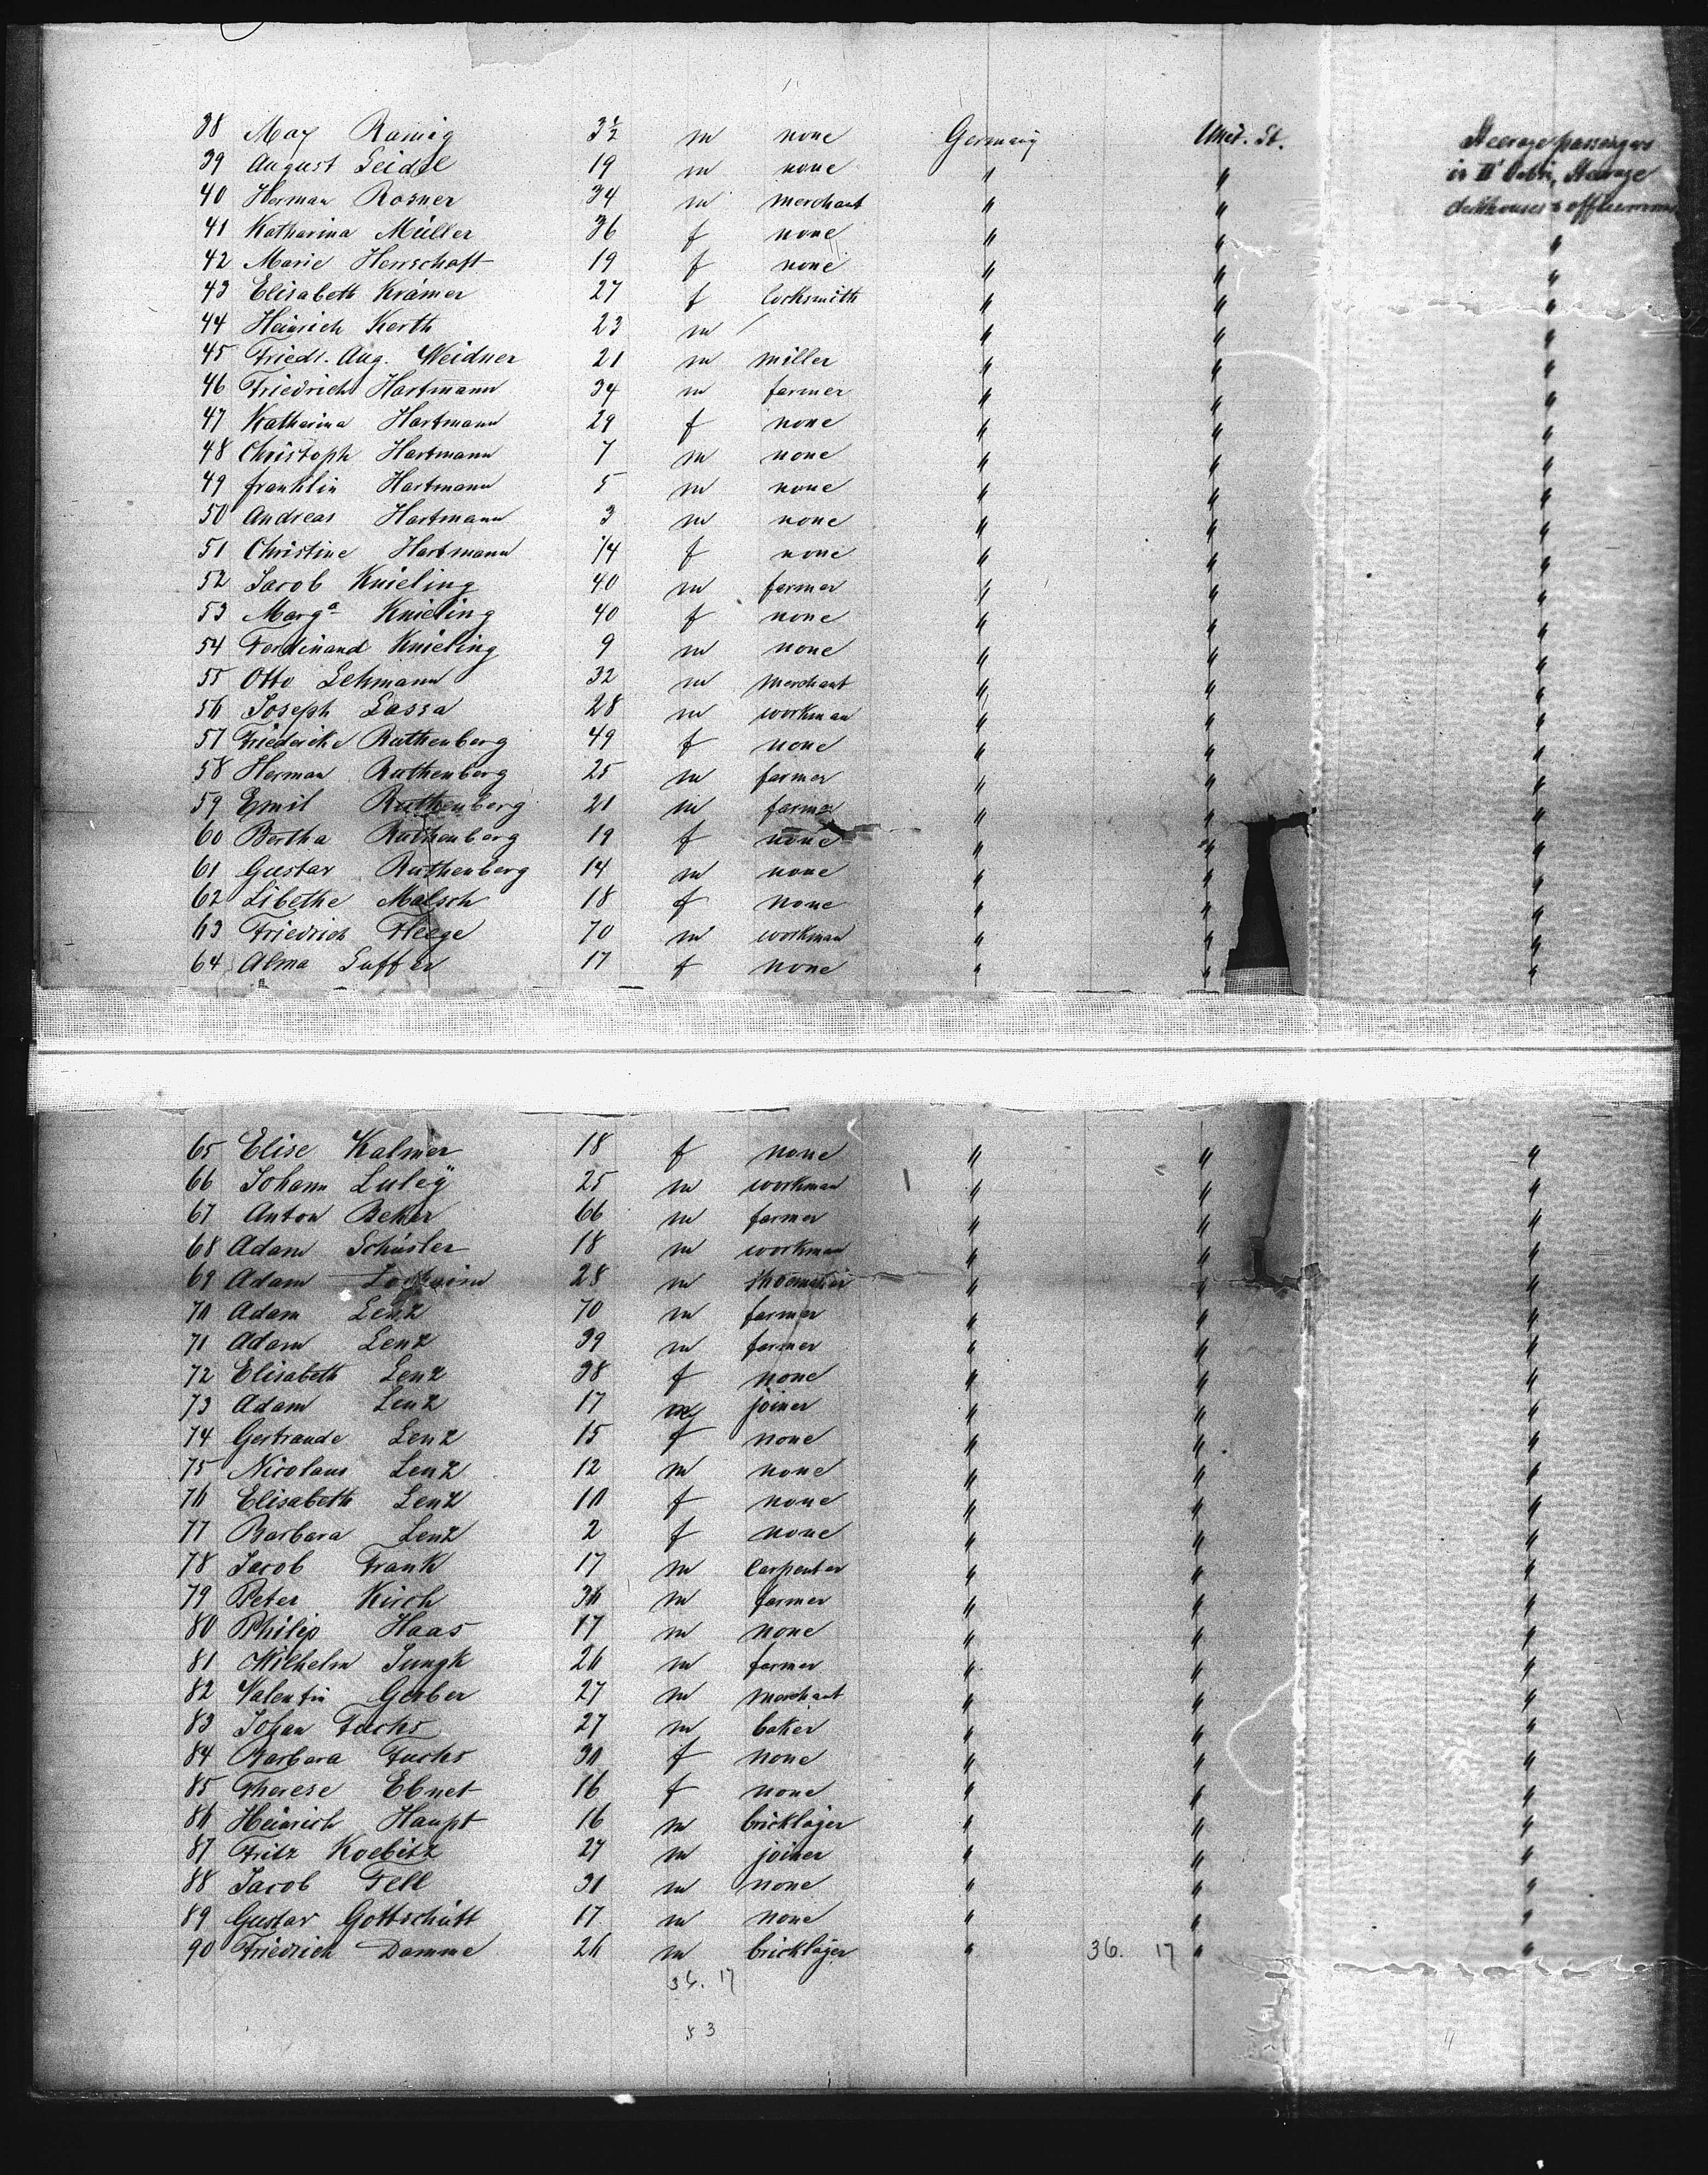 38 Max Ramig 3½ m none Germany Unit. St. Steerage passengers
39 August Seidel 19 m none " " in II Cabin, Steerage
40 Herman Rosner 34 m merchant " " deckhouses &
41 Katharina Müller 36 f none " " "
42 Marie Herrschaft 19 f none " " "
43 Elisabeth Krämer 27 f locksmith " " "
44 Heinrich Kerth 23 m / " " "
45 Friedr. Aug. Weidner 21 m miller " " "
46 Friedrich Hartmann 34 m farmer " " "
47 Katharina Hartmann 29 f none " " "
48 Christoph Hartmann 7 m none " " "
49 Franklin Hartmann 5 m none " " "
50 Andreas Hartmann 3 m none " " "
51 Christine Hartmann 1/4 f none " " "
52 Jacob Knieling 40 m farmer " " "
53 Marga Knieling 40 f none " " "
54 Ferdinand Knieling 9 m none " " "
55 Otto Lehmann 32 m merchant " " "
56 Joseph Lassa 28 m workman " " "
57 Friedericke Ruthenberg 49 f none " " "
58 Herman Ruthenberg 25 m farmer " " "
59 Emil Ruthenberg 21 m farmer " " "
60 Bertha Ruthenberg 19 f none " " "
61 Gustav Ruthenberg 14 m none " " "
62 Libethe Malsch 18 f none " " "
63 Friedrich Fleege 70 m workman " " "
64 Alma Suffer 17 f none " " "
65 Elise Kalmer 18 f none " " "
66 Johann Luley 25 m workman " " "
67 Anton Beker 66 m farmer " " "
68 Adam Schüsler 18 m workman " " "
69 Adam 28 m shoemaker " " "
70 Adam Lenz 70 m farmer " " "
71 Adam Lenz 39 m farmer " " "
72 Elisabeth Lenz 38 f none " " "
73 Adam Lenz 17 m joiner " " "
74 Gertraude Lenz 15 f none " " "
75 Nicolaus Lenz 12 m none " " "
76 Elisabeth Lenz 10 f none " " "
77 Barbara Lenz 2 f none " " "
78 Jacob Frank 17 m carpenter " " "
79 Peter Kirch 36 m farmer " " "
80 Philip Haas 17 m none " " "
81 Wilhelm Jungk 26 m farmer " " "
82 Valentin Gerber 27 m merchant " " "
83 Johan Fuchs 27 m baker " " "
84 Barbara Fuchs 30 f none " " "
85 Therese Ebnet 16 f none " " "
86 Heinrich Haupt 16 m bricklayer " " "
87 Fritz Koebitz 27 m joiner " " "
88 Jacob Fell 31 m none " " "
89 Gustav Gottschütt 17 m none " " "
90 Friedrich Damme 26 m bricklayer " 36. 17 " "
36. 17
53